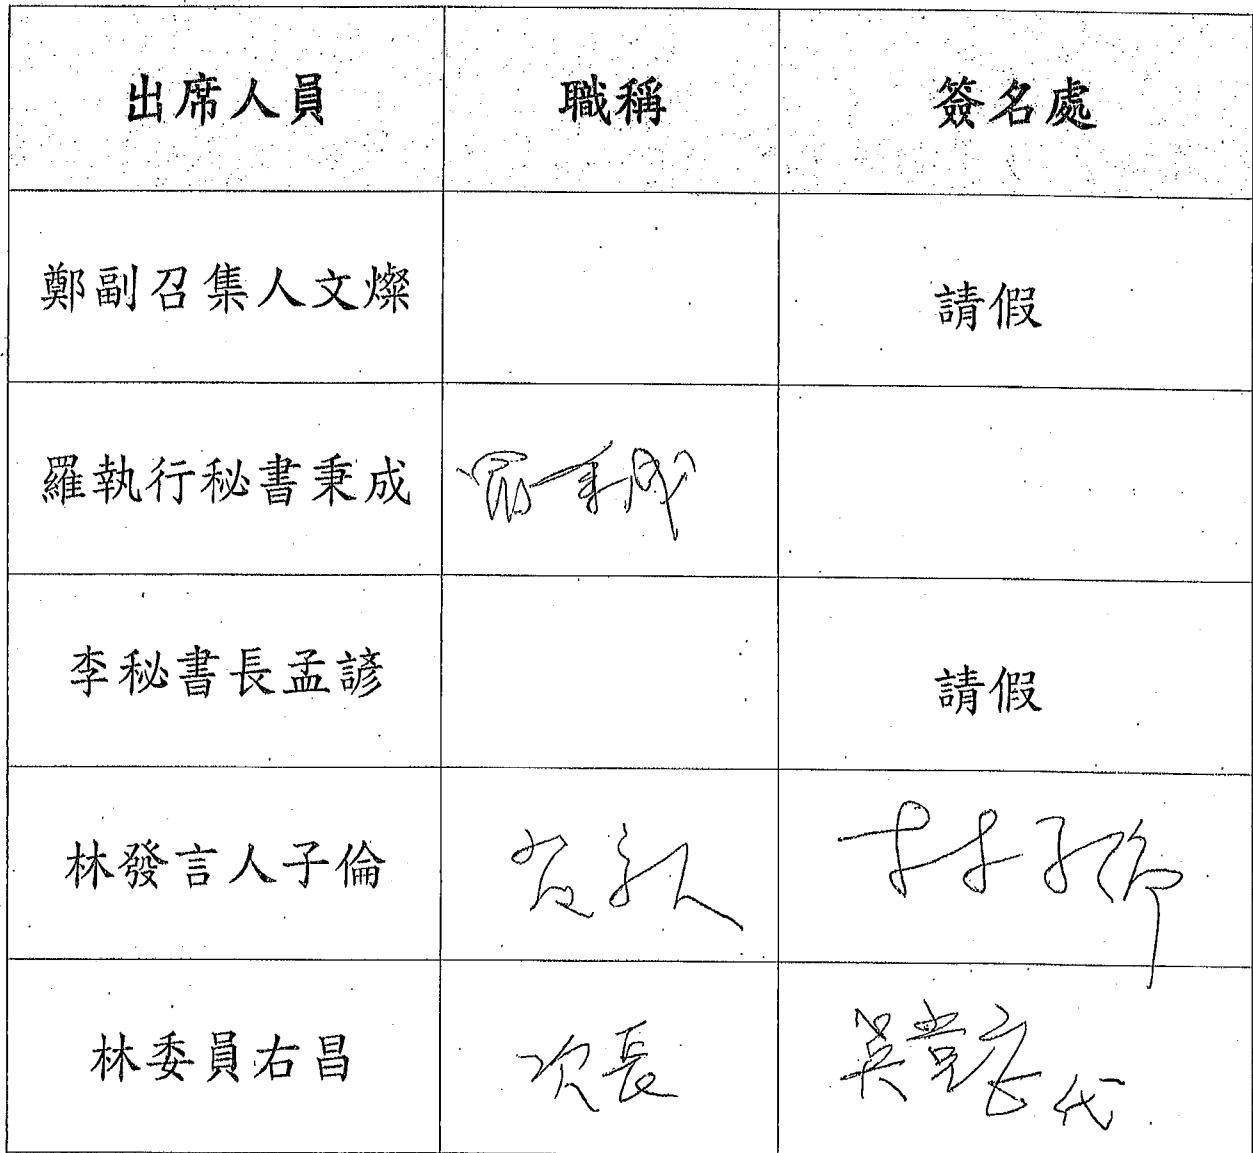 出席人員 職稱 簽名處
鄭副召集人文燦 請假
羅執行秘書秉成 羅秉成
李秘書長孟諺 請假
林發言人子倫 發言人 林子倫
林委員右昌 次長 吳堂安代